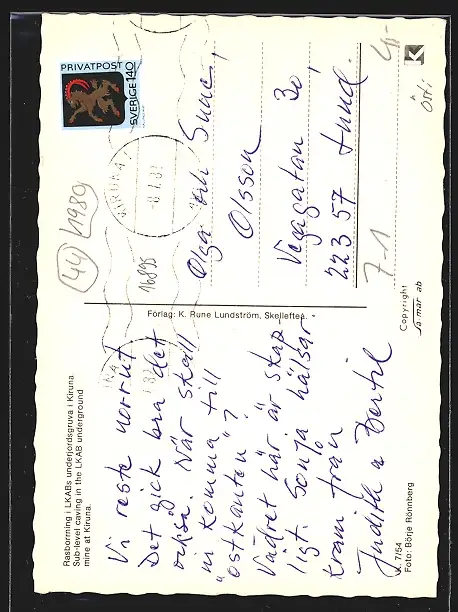 Rasborrning i LKABs underjordsgruva i Kiruna
Sub-level caving in the LKAB underground
mine at Kiruna.
Vi reste norrut
Det gick bra det
också. När skall
ni komma till
"ostkanten"?
Vädret här är skap
ligt. Sonja hälsar
Kram från
Judith o Bertil
K. 7/54
Foto: Börje Rönnberg
Förlag: K. Rune Lundström, Skellefteå.
PRIVATPOST
SVERIGE 140
KIRUNA
44
1989
16895
Olga och Sune
Olsson
Vegagatan 30
223 57 Lund
7-1
4:-
Copyright
K